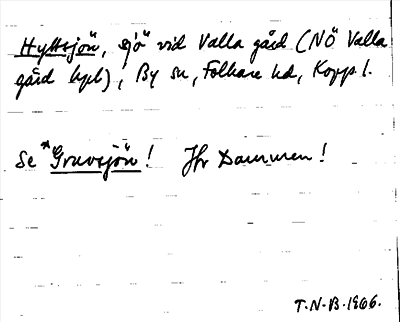 Hyttsjön, sjö vid Valla gård (NÖ Valla
gård hpl), By sn, Folkare hd, Kopp l.
Se *Gruvsjön! Jfr Dammen!
T.N-B. 1966.